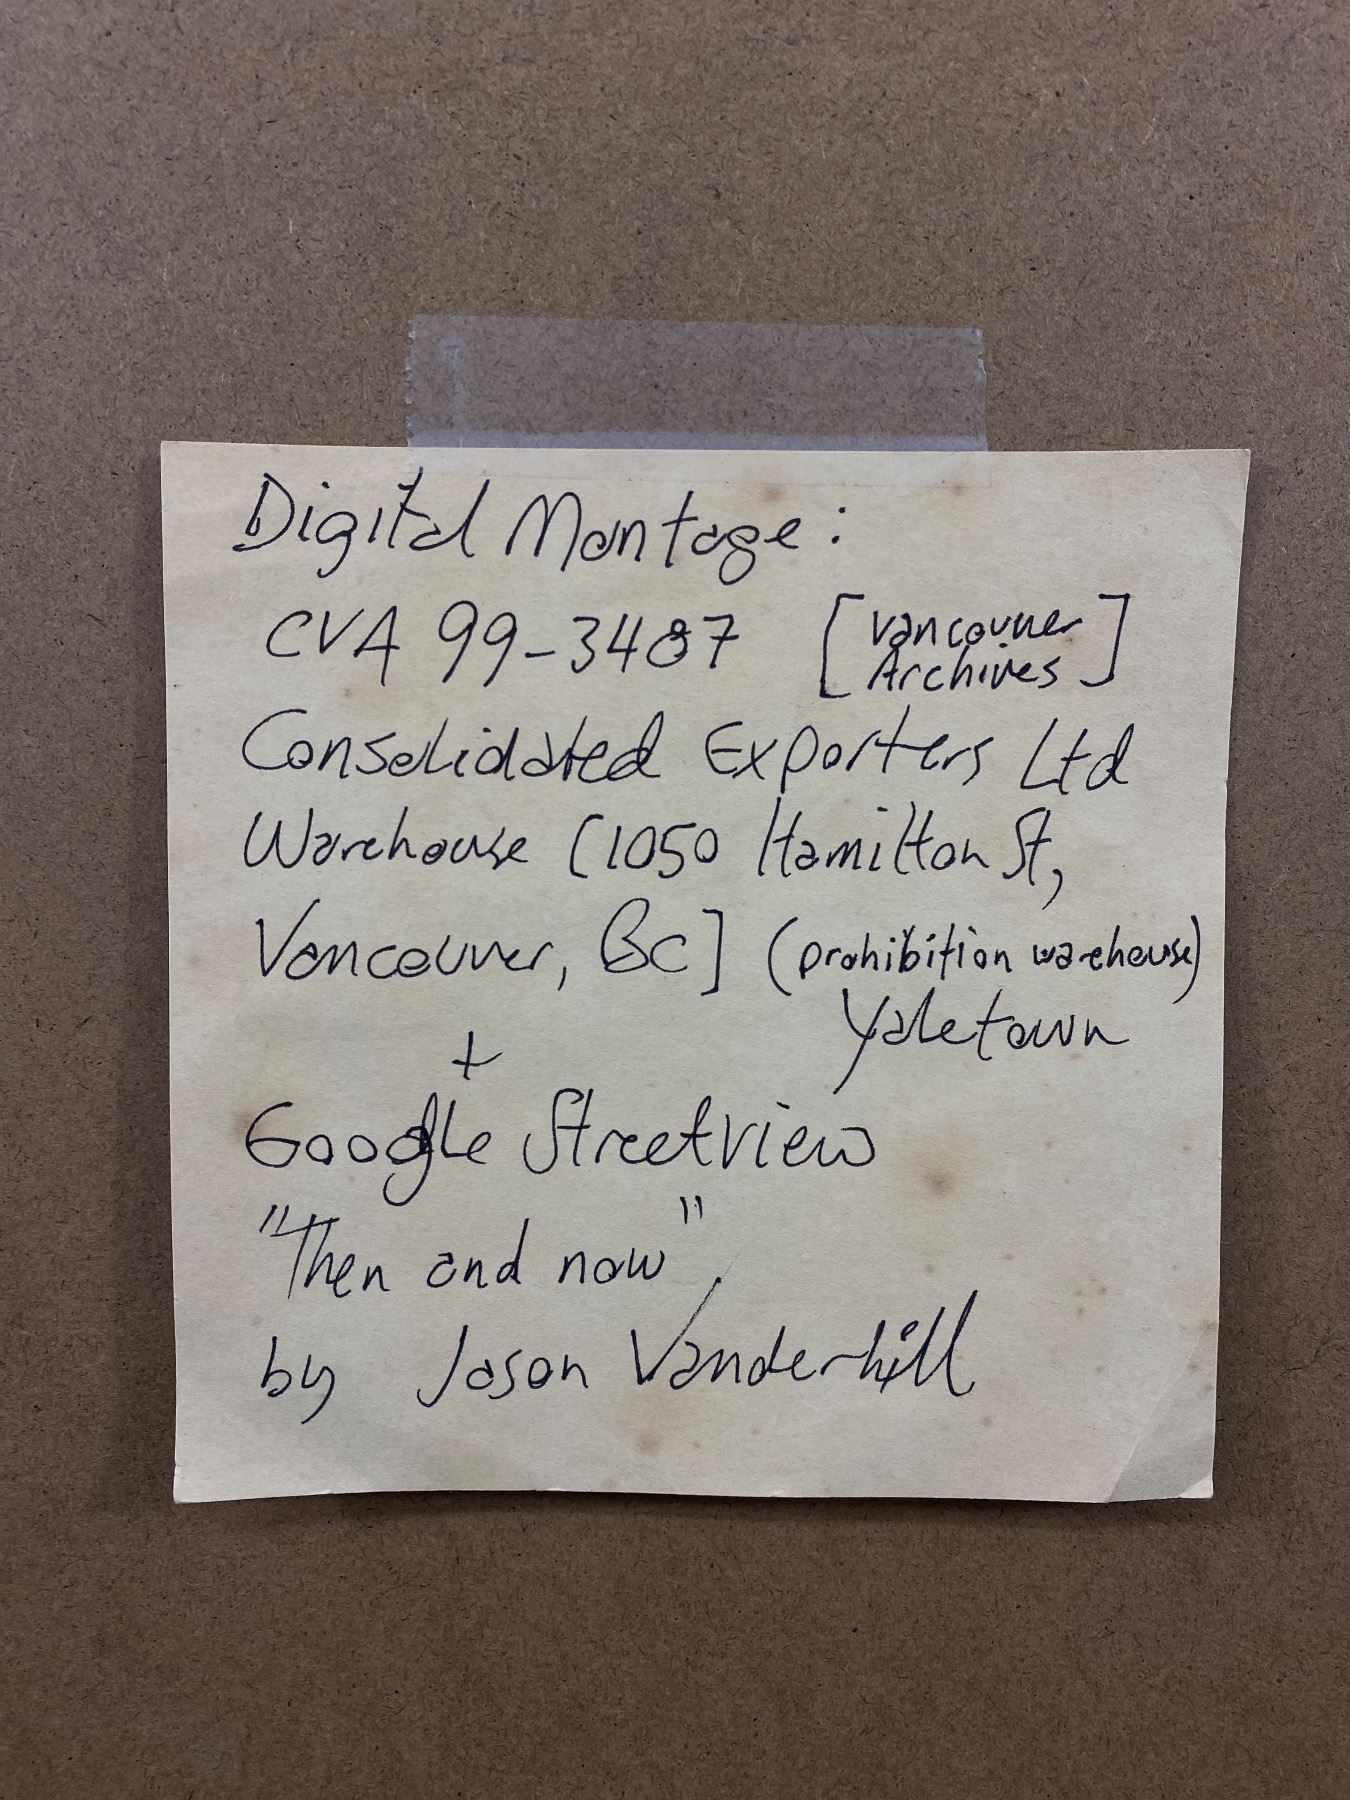 Digital Montage:
CVA 99-3487 [Vancouver
Archives]
Consolidated Exporters Ltd
Warehouse [1050 Hamilton St,
Vancouver, BC] (prohibition warehouse)
Yaletown
+
Google Streetview
"Then and now"
by Jason Vanderhill